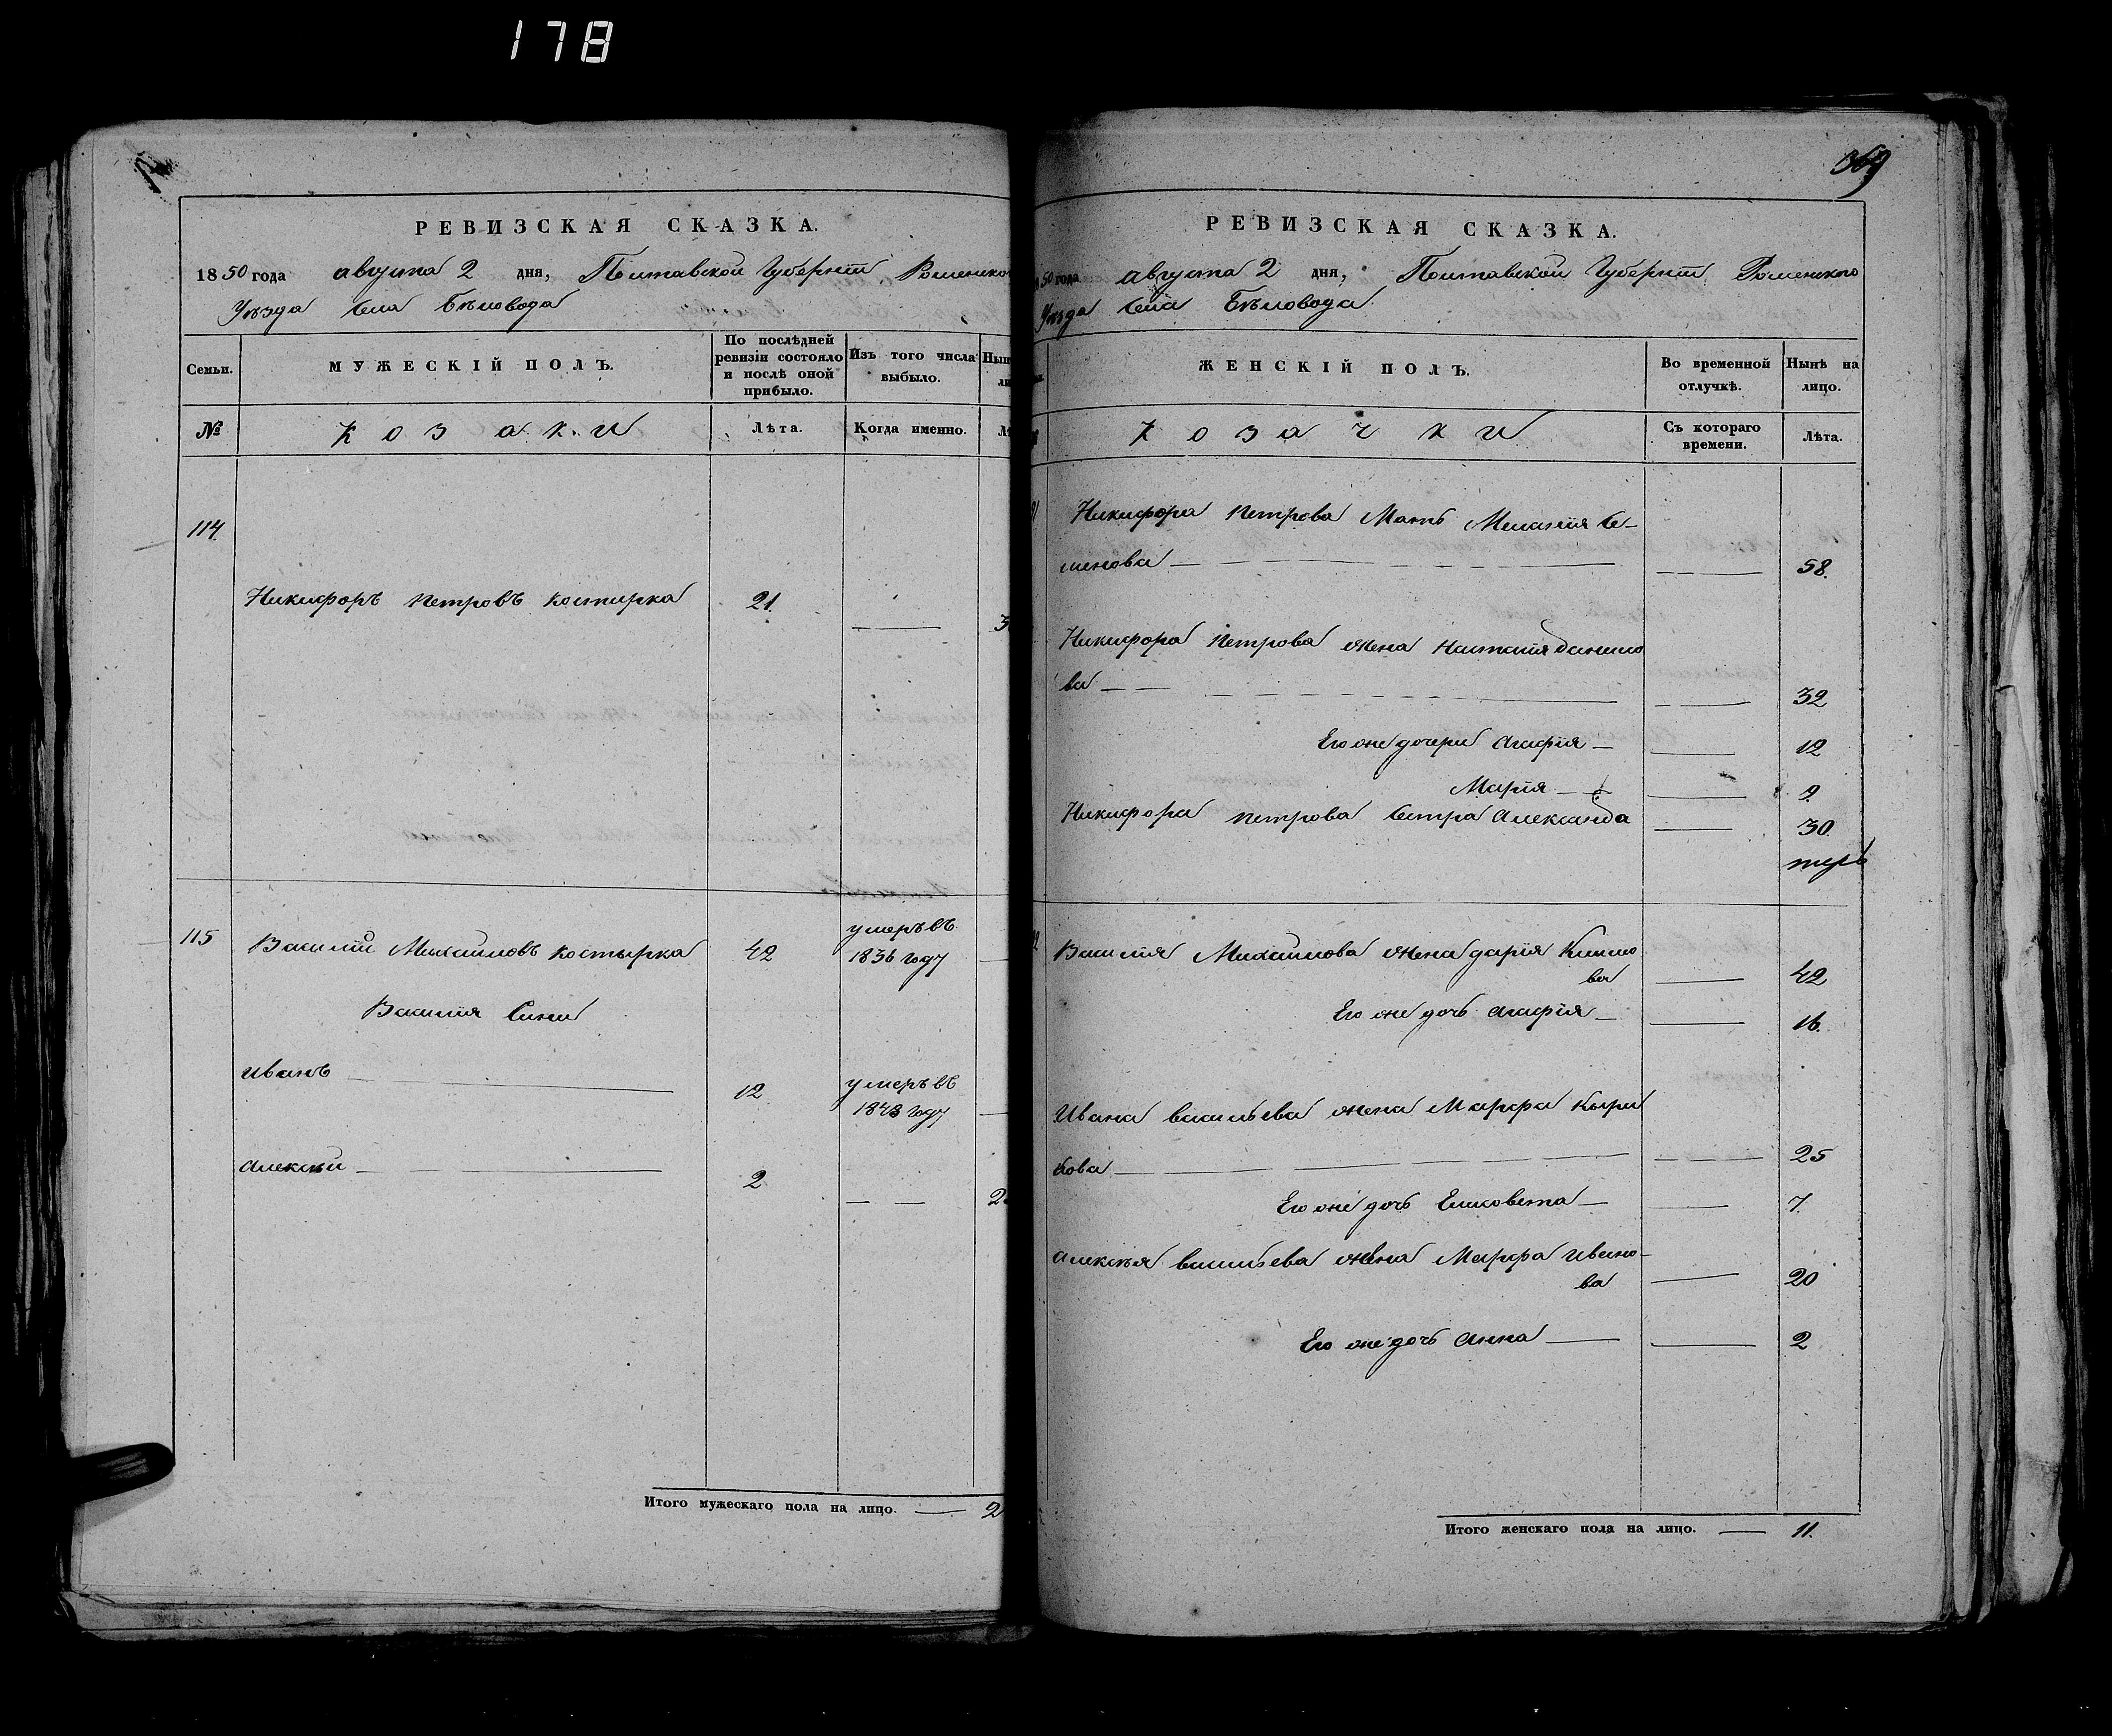 178
РЕВИЗСКАЯ СКАЗКА.
1850 года августа 2 дня, Полтавской Губернiи Роменско
Уѣзда Села Бѣловода
Семьи.
МУЖЕСКІЙ ПОЛЪ.
По послѣдней ревизіи состояло и послѣ оной прибыло.
Изъ того числа выбыло.
№
Козаки
Лѣта.
Когда именно.
114.
Никифоръ Петровъ Костирка 21.
115 Василiй Михаиловъ Костырка 42 умеръ въ
1836 году
Василiя Сини
Иванъ 12 умеръ въ
1843 году
Алексѣй 2
Итого мужескаго пола на лицо. 2
369
РЕВИЗСКАЯ СКАЗКА.
50 года августа 2 дня, Полтавской Губернiи Роменского
Уѣзда Села Бѣловода
ЖЕНСКІЙ ПОЛЪ.
Во временной отлучкѣ.
Нынѣ на лицо.
Козачки
Съ котораго времени.
Лѣта.
Никифора Петрова Мать Меланiя Се-
менова 58.
Никифора Петрова жена Наталiя Данило
ва 32
Его же дочери Агафiя 12
Марiя 9
Никифора Петрова Сестра Александра 30.
Василiя Михаилова жена Дарiя Климо
ва 42
Его же дочь Агафiя 16.
Ивана Васильева жена Марфа Кири
лова 25
Его же дочь Елисовета 7.
Алексѣя Васильева жена Марфа Ивано-
ва 20
Его же дочь Анна 2
Итого женскаго пола на лицо. 11.